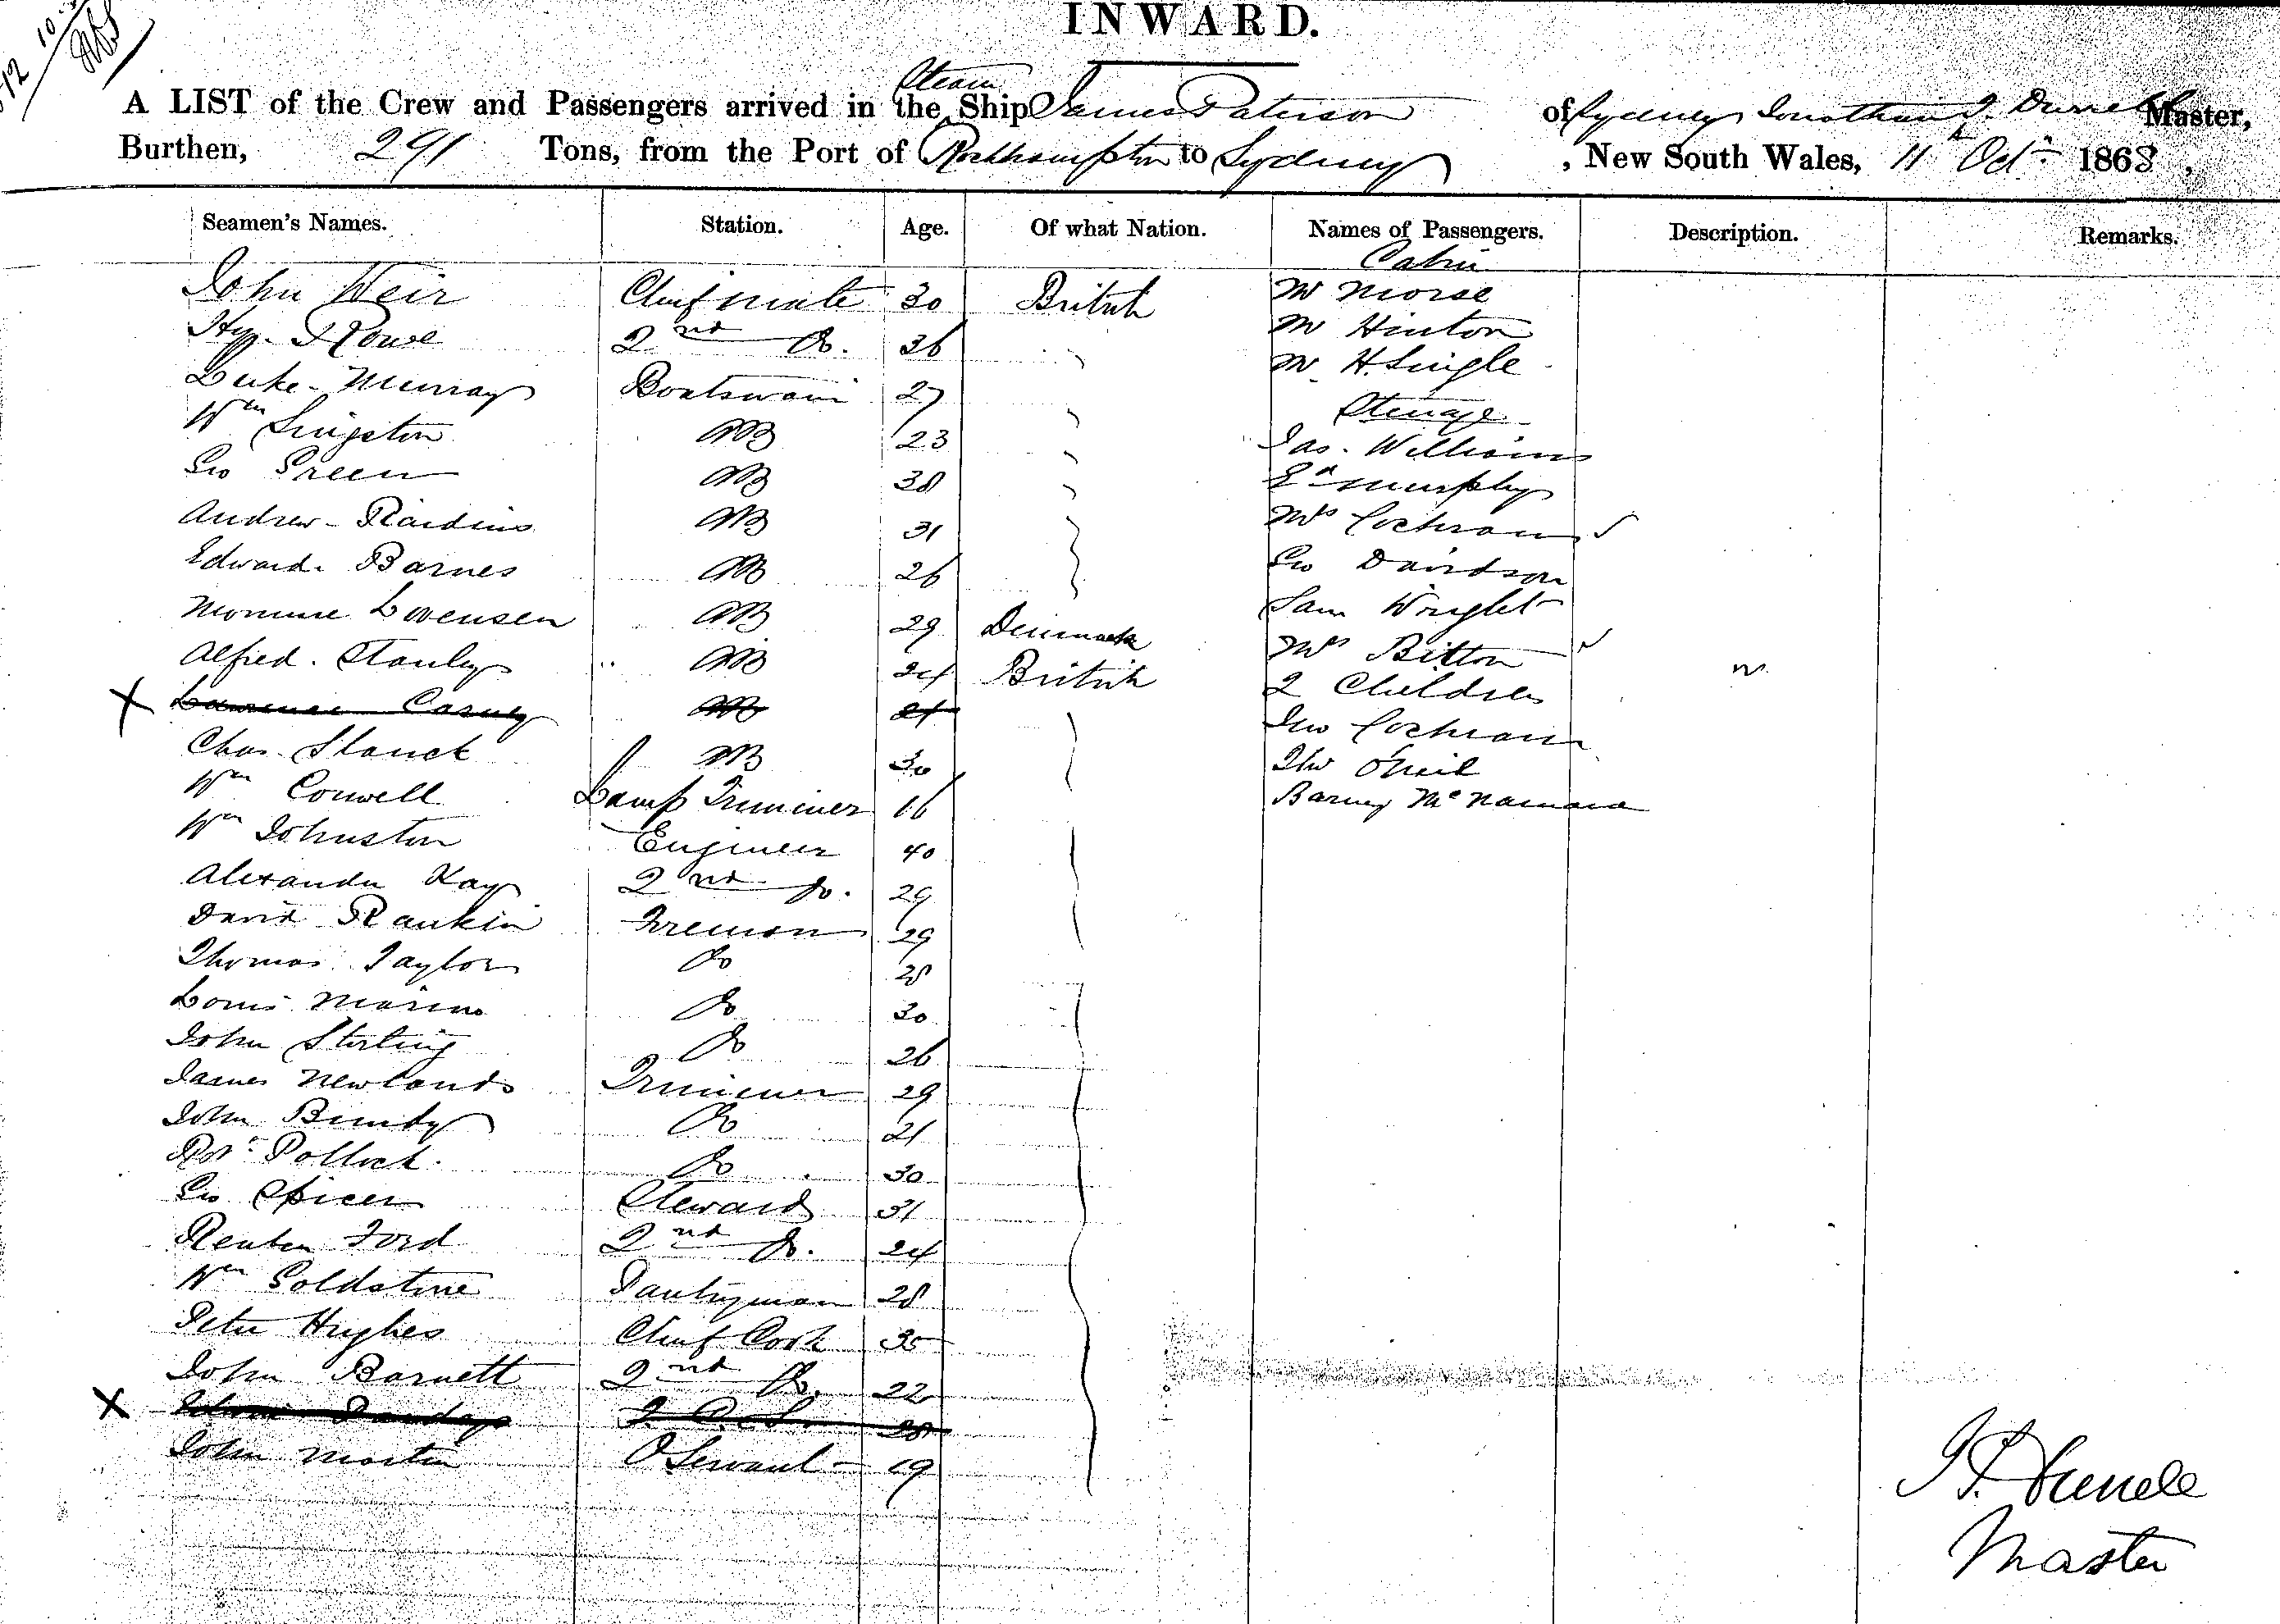 INWARD.
Steam
A LIST of the Crew and Passengers arrived in the Ship James Paterson of Sydney Master,
Burthen, 291 Tons, from the Port of Rockhampton to Sydney, New South Wales, 11th Oct. 1868,
Seamen's Names. Station. Age. Of what Nation. Names of Passengers. Description. Remarks.
Cabin
John Weir Chief mate 30 British Mr Morse
Rowe 2nd Do. 36 Mr Hinton
Luke Murray Boatswain 27 Mr H. Single
Steerage
Wm Singston AB 23 Jas. Williams
Geo Green AB 38 Ed Murphy
Andrew AB 31 Mrs Cochran
Edward Barnes AB 26 Geo Davidson
Lorensen AB 29 Denmark Sam Wright
Alfred Stanley AB 24 British Mrs Bitton
Lawrence Carney AB 24 2 Children
Chas. AB 30 Jno Cochran
Wm Conwell Lamp Trimmer 16 O'Neil
Wm Johnston Engineer 40 Barney McNamara
Alexander Kay 2nd Do. 29
David Rankin Fireman 29
Thomas Taylor Do 28
Louis Do 30
John Stirling Do 26
James Newlands Trimmer 29
John Do 21
Robt Pollock Do 30
Geo Spicer Steward 31
Reuben Ford 2nd Do. 24
Wm Goldstone Pantryman 28
Peter Hughes Chief Cook 35
John Barnett 2nd Do. 22
28
John Martin 19
Master